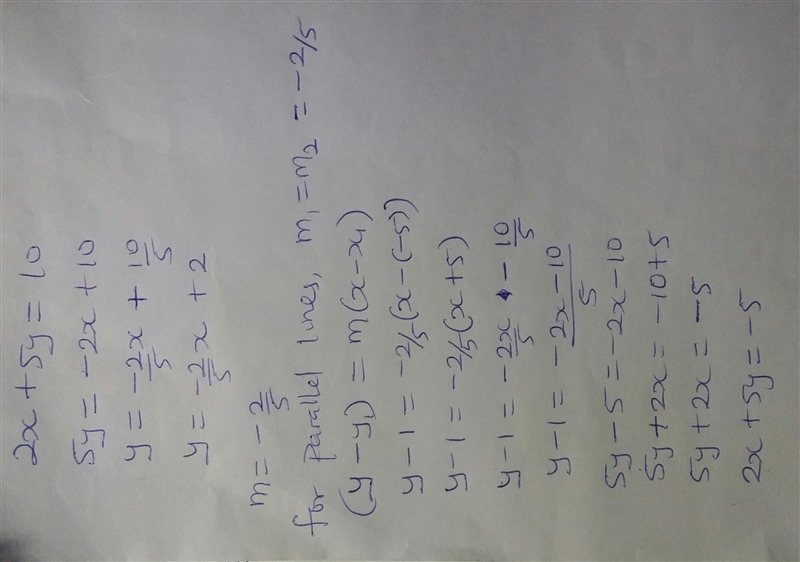 2x + 5y = 10
5y = -2x + 10
y = -2/5 x + 10/5
y = -2/5 x + 2
m = -2/5
for parallel lines, m₁ = m₂ = -2/5
(y - y₁) = m(x - x₁)
y - 1 = -2/5(x - (-5))
y - 1 = -2/5(x + 5)
y - 1 = -2x/5 - 10/5
y - 1 = (-2x - 10)/5
5y - 5 = -2x - 10
5y + 2x = -10 + 5
5y + 2x = -5
2x + 5y = -5